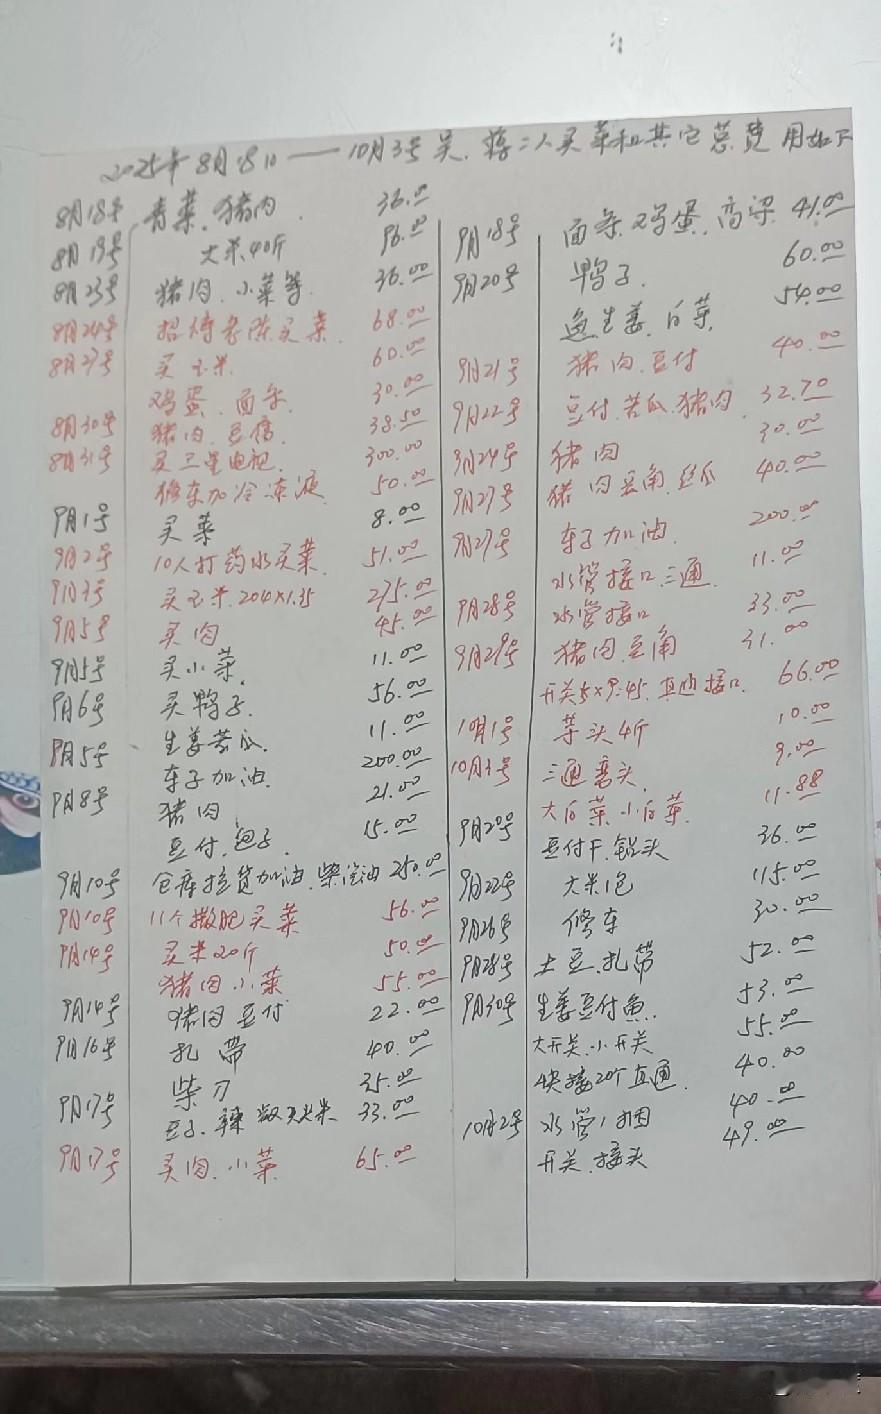 2025年8月18日——10月3号吴.蒋二人买菜和其它总费用如下
8月18号 青菜.猪肉. 36.00
8月19号 大米40斤 96.00
8月23号 猪肉.小菜等. 36.00
8月24号 招待老陈买菜. 68.00
8月27号 买玉米. 60.00
鸡蛋.面条. 30.00
8月30号 猪肉.豆腐. 38.50
8月31号 买三星电池. 300.00
修车加冷冻液. 50.00
9月1号 买菜 8.00
9月2号 10人打药水买菜. 51.00
9月3号 买玉米.204×1.35 275.00
9月5号 买肉 45.00
9月5号 买小菜. 11.00
9月6号 买鸭子. 56.00
生姜苦瓜. 11.00
9月5号 车子加油. 200.00
9月8号 猪肉 21.00
豆付.包子. 15.00
9月10号 仓库拉货加油.柴汽油 250.00
9月10号 11个撒肥买菜 56.00
9月14号 买米20斤 50.00
猪肉小菜 55.00
9月14号 猪肉豆付 22.00
9月16号 扎带 40.00
柴刀 35.00
9月17号 豆子.辣椒 33.00
9月17号 买肉.小菜. 65.00
9月18号 面条.鸡蛋.高粱. 41.00
9月20号 鸭子. 60.00
鱼生姜.白菜. 54.00
9月21号 猪肉.豆付 40.00
9月22号 豆付.苦瓜.猪肉. 32.70
9月24号 猪肉 30.00
9月27号 猪肉豆角.丝瓜 40.00
9月27号 车子加油. 200.00
水管接口.三通. 11.00
9月28号 水管接口 33.00
9月29号 猪肉.豆角 31.00
开关5×9.45.直通接口. 66.00
10月1号 芋头4斤 10.00
10月3号 三通弯头. 9.00
大白菜.小白菜. 11.88
9月20号 豆付干.钻头 36.00
9月22号 大米1包 115.00
9月26号 修车 30.00
9月28号 土豆.扎带 52.00
9月30号 生姜豆付鱼. 53.00
大开关.小开关 55.00
快接20个直通. 40.00
10月2号 水管1捆 40.00
开关.接头 49.00